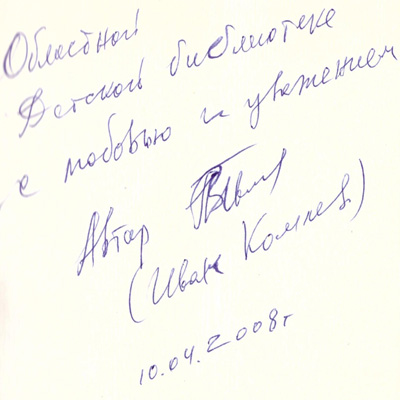 Областной
Детской библиотеке
с любовью и уважением
Автор
(Иван Комлев)
10.04.2008г